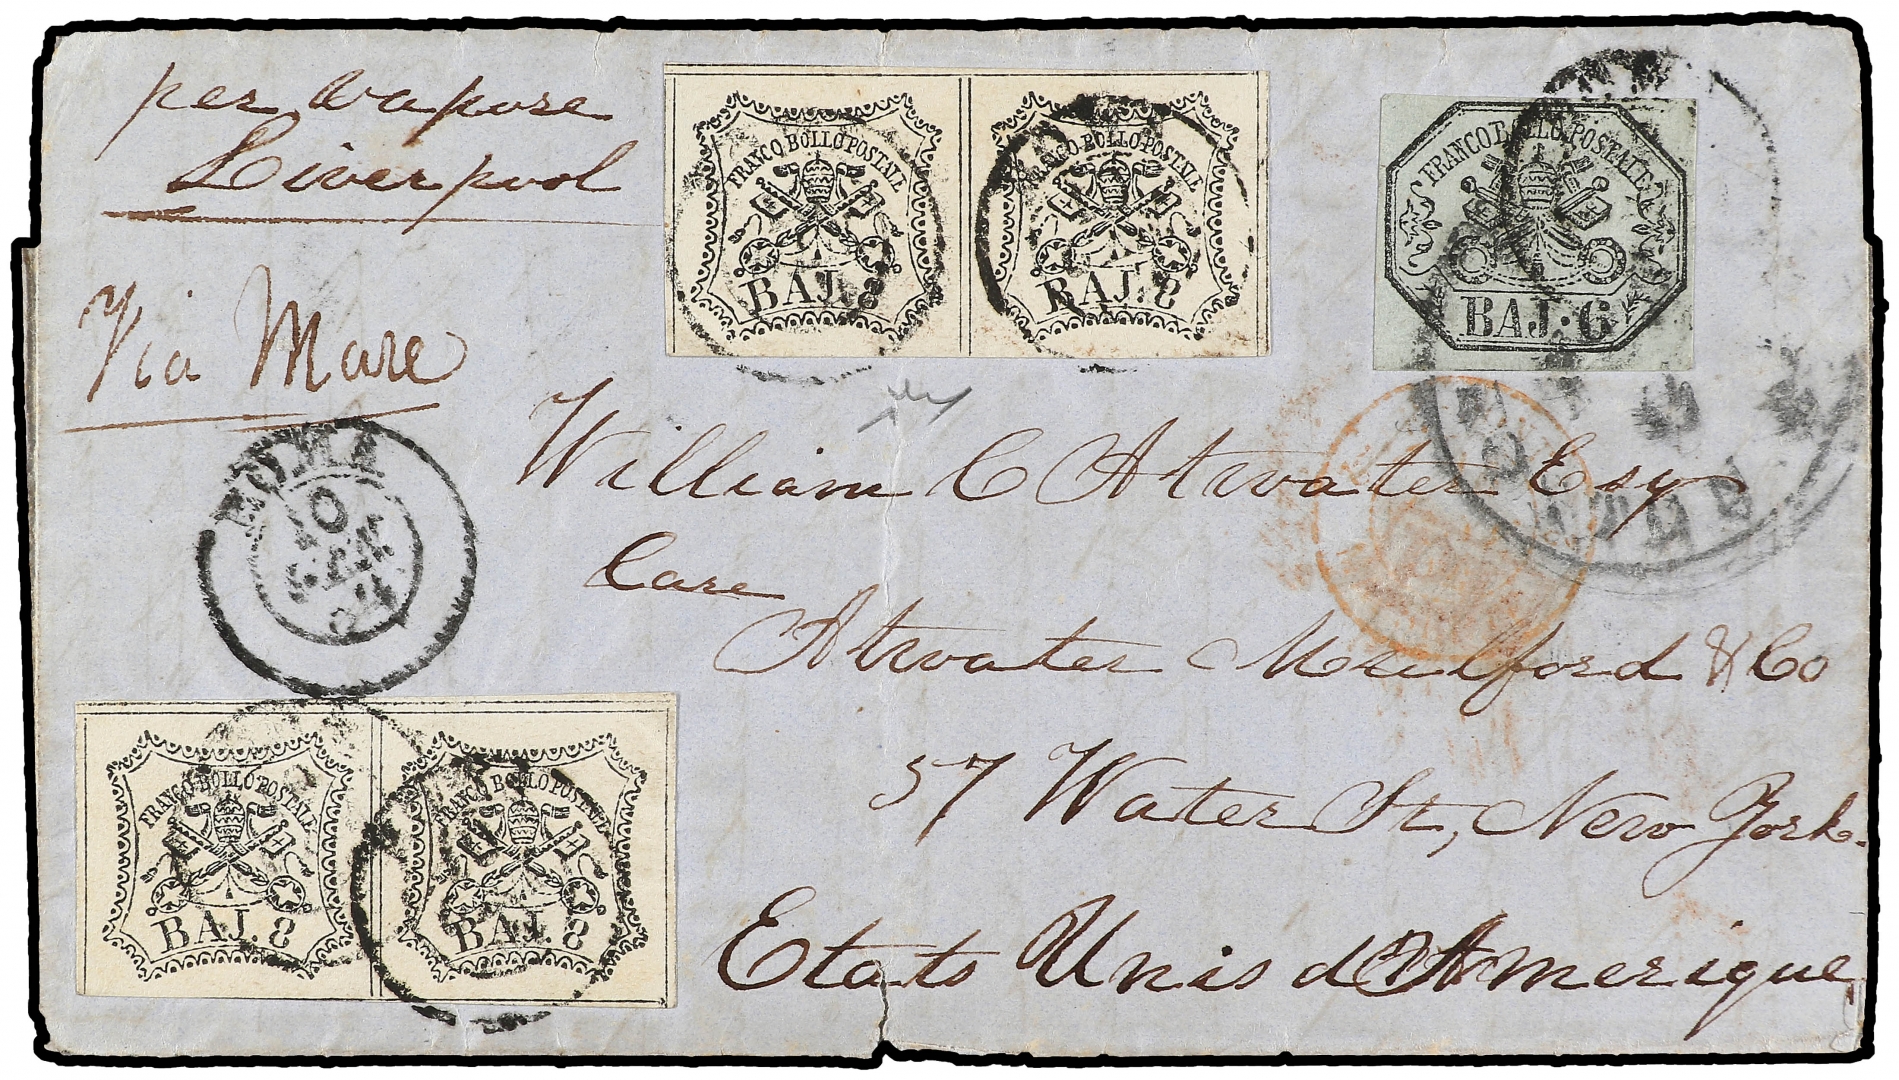 per Vapore
Liverpool
Via Mare
FRANCO BOLLO POSTALE
BAJ. 8
FRANCO BOLLO POSTALE
BAJ. 8
FRANCO BOLLO POSTALE
BAJ: 6
ROMA
10
64
William C Atwater Esq
Care
Atwater Mulford & Co
57 Water St, New York.
Etats Unis d'Amerique
FRANCO BOLLO POSTALE
BAJ. 8
FRANCO BOLLO POSTALE
BAJ. 8